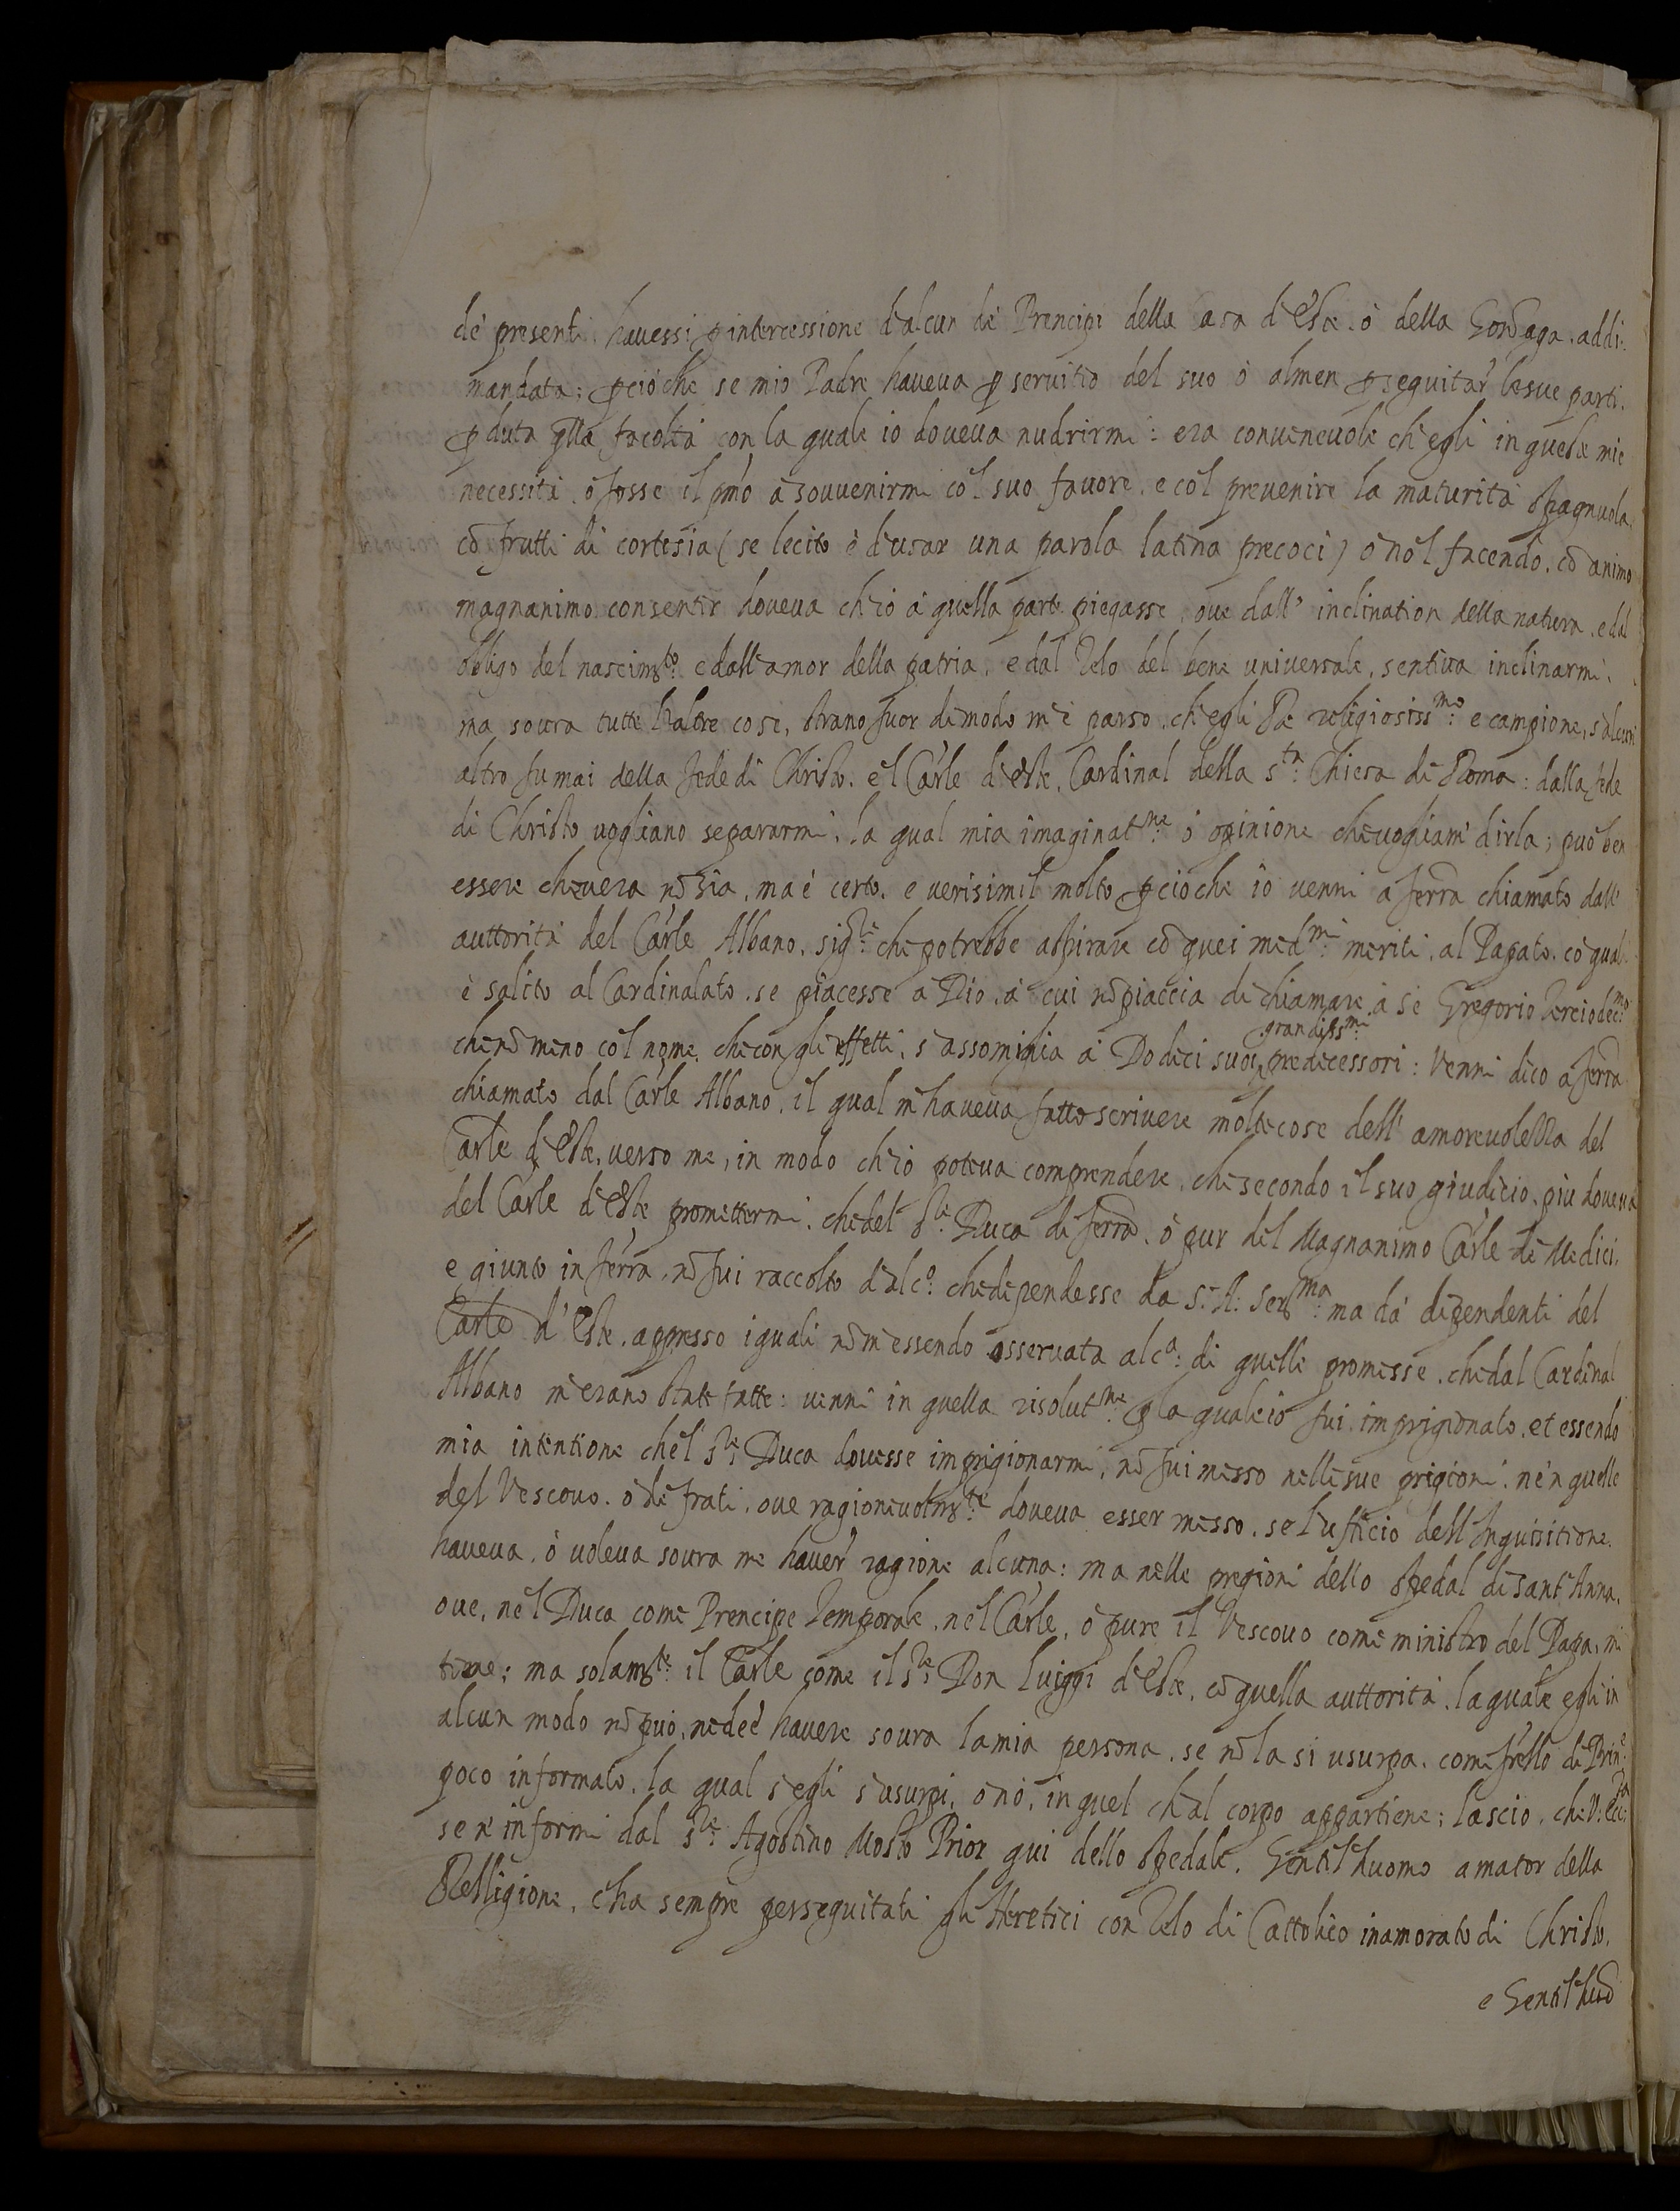 de' presenti. havessi p intercessione d'alcun de' Prencipi della Casa d'Este. ò della Gonzaga. addi-
mandata: pcioche se mio Padre haveva p servitio del suo ò almen p seguitar le sue parti.
pduta qlla facoltà con la quale io doveva nudrirmi: era convenevole ch'egli in queste mie
necessità. ò fosse il pmo à sovvenirmi co'l suo favore. e co'l prevenire la maturità Spagnuola,
cō frutti di cortesia (se lecito è d'usar una parola latina precoci) ò no'l facendo. cō animo
magnanimo consentir doveva ch'io à quella parte piegasse, ove dall' inclination della natura. e dal
obligo del nascimto: e dall'amor della patria, e dal Zelo del bene universale. sentiva inclinarmi.
ma sovra tutte l'altre cose, strano fuor di modo m'è parso. ch'egli Re religiosissmo: e campione, s'alcun
altro fu mai della fede di Christo. e'l Carle d'este. Cardinal della sta: Chiesa di Roma: dalla fede
di Christo vogliano separarmi. la qual mia imaginatne: ò opinione che vogliam' dirla; può ben
essere che vera nō sia. ma è certo. e verisimil molto pcioche io venni à ferra chiamato dall'
auttorità del Carle Albano. sigre: che potrebbe aspirare cō quei medmi: meriti. al Papato. co' quali
è salito al Cardinalato. se piacesse à Dio. à cui nō piaccia di chiamare à sè Gregorio terciodecmo:
che nō meno co'l nome. che con gli effetti, s'assomiglia à Dodici suoi grandissmi predecessori: Venni dico à ferra
chiamato dal Carle Albano. il qual m'haveva fatto scrivere molte cose dell' amorevolezza del
Carle d'Este. verso me, in modo ch'io poteva comprendere. che secondo il suo giudicio. più doveva
del Carle d'Este promettermi. che del sre: Duca di ferra. ò pur del Magnanimo Carle de Medici.
e giunto in ferra. nō fui raccolto d'alco: che dependesse da S: A: Serma: ma da' dependenti del
Carle d'Este. appresso i quali nō m'essendo osservata alca: di quelle promesse. che dal Cardinal
Albano m'erano state fatte: venni in quella risolutne: p la quale io fui imprigionato. et essendo
mia intentione che'l sre: Duca dovesse imprigionarmi, nō fui messo nelle sue prigioni. nè'n quelle
del Vescovo. ò de frati. ove ragionevolmte: doveva esser messo. se l'ufficio dell'Inquisitione.
haveva, ò voleva sovra me haver' ragione alcuna: ma nelle pregioni dello Spedal di sant'Anna.
ove, nè'l Duca come Prencipe Temporale. nè'l Carle, ò pure il Vescovo come ministro del Papa, mi
tiene; ma solamte: il Carle come il sre: Don luiggi d'Este. cō quella auttorità. la quale egli in
alcun modo nō può. nè deè havere sovra la mia persona. se nō la si usurpa. come frello di Prine:
poco informato. la qual s'egli s'usurpi, ò nò, in quel ch'al corpo appartiene; lascio, che V: Ecc:
se n'informi dal sre: Agostino Mosto Prior qui dello Spedale. Gentil'huomo amator della
Relligione. c'ha sempre perseguitati gli Heretici con Zelo di Cattolico inamorato di Christo.
e Gentil'huō